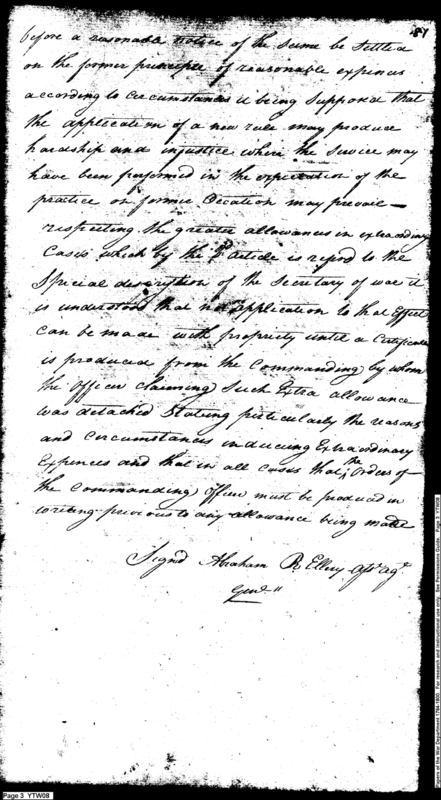 87
before a reasonable notice of the same be settled
on the former principle of reasonable expences
according to circumstances it being supposed that
the application of a new rule may produce
hardship and injustice where the service may
have been performed in the expectation of the
practice on former Occation may prevail —
respecting the greater allowances in extraordinary
Cases which by the article is referd to the
Special description of the Secretary of war it
is understood that no application to that Effect
can be made with propriety until a Certificate
is produced from the Commanding) by whom
the officer claiming) Such Extra allowance
was detached Stating particularly the reasons
and circumstances inducing Extraordinary
Expences and that in all cases that the Orders of
the Commanding) Officer must be produced in
writing previous to any allowance being made
Signd Abraham R Ellery asst agt
Genl "
Page 3 YTW08